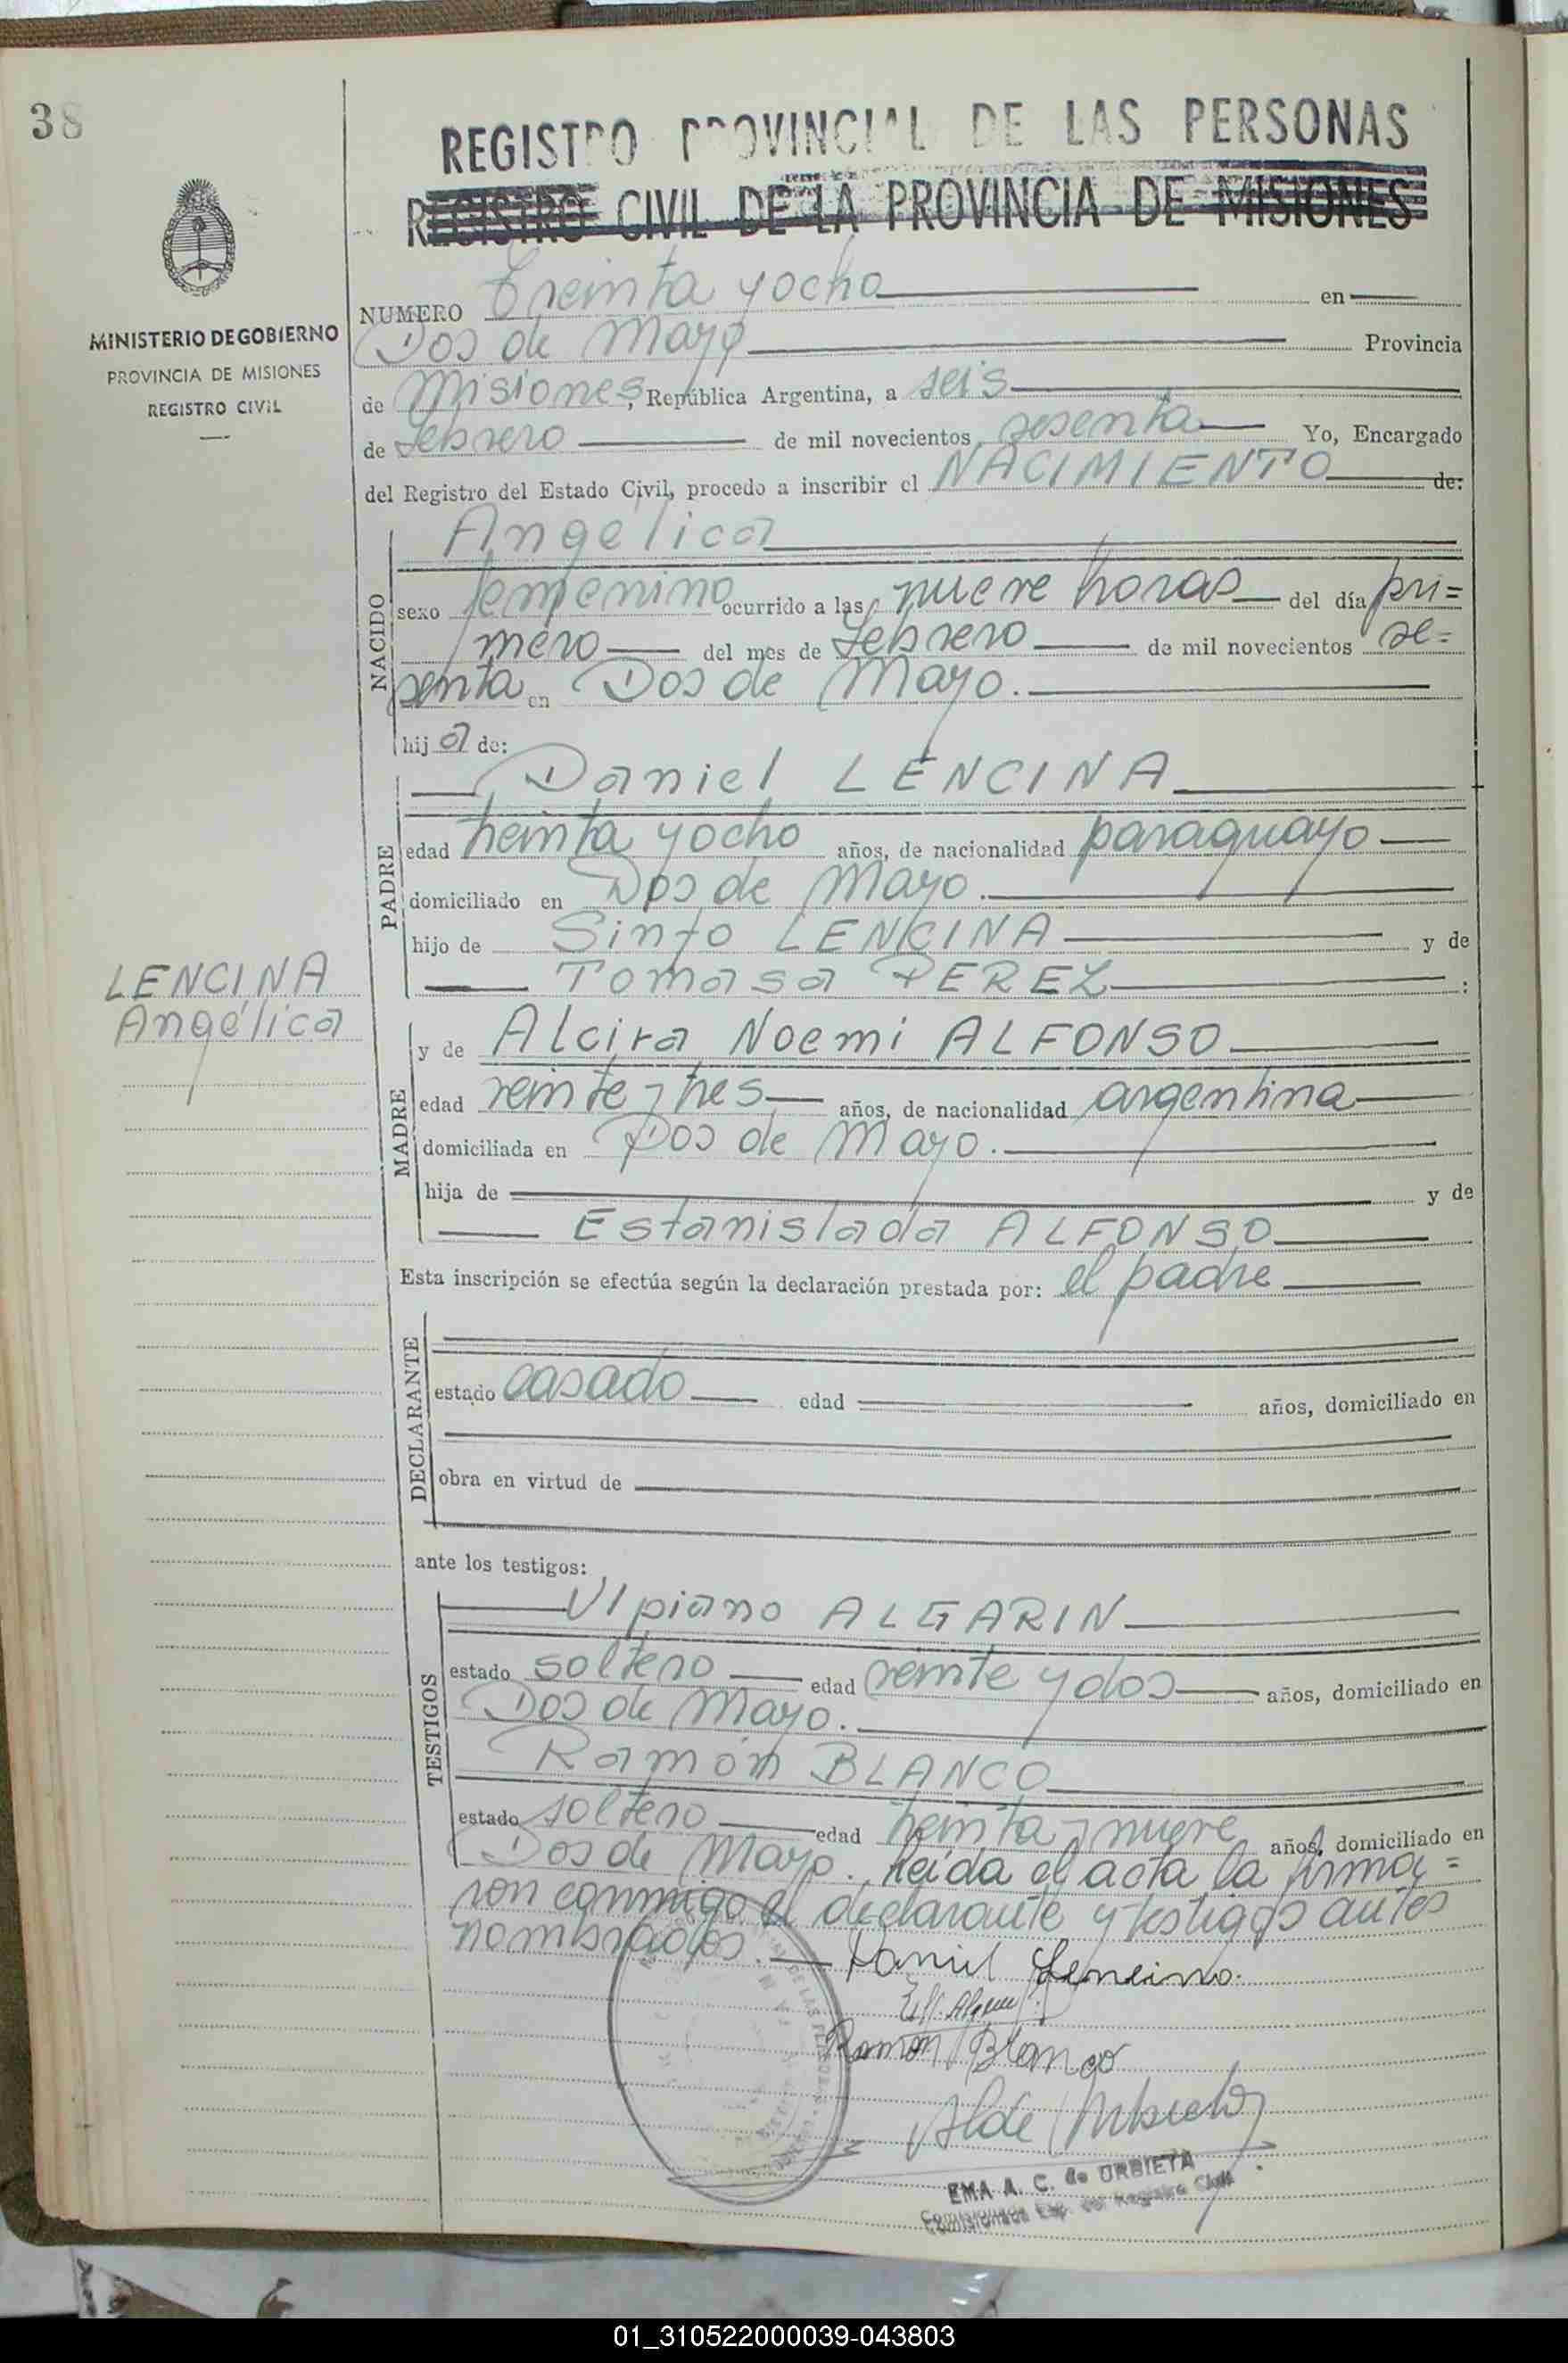 38
REGISTRO PROVINCIAL DE LAS PERSONAS
REGISTRO CIVIL DE LA PROVINCIA DE MISIONES
MINISTERIO DE GOBIERNO
PROVINCIA DE MISIONES
REGISTRO CIVIL
NUMERO Treinta y ocho en
Dos de Mayo Provincia
de Misiones, República Argentina, a seis
de febrero de mil novecientos sesenta Yo, Encargado
del Registro del Estado Civil, procedo a inscribir el NACIMIENTO de:
NACIDO
Angélica
sexo femenino ocurrido a las nueve horas del día pri=
mero del mes de febrero de mil novecientos se=
senta en Dos de Mayo.
hija de:
PADRE
Daniel LENCINA
edad treinta y ocho años, de nacionalidad paraguayo
domiciliado en Dos de Mayo.
hijo de Sinfo LENCINA y de
Tomasa PEREZ :
LENCINA
Angélica
MADRE
y de Alcira Noemi ALFONSO
edad veinte y tres años, de nacionalidad argentina
domiciliada en Dos de Mayo.
hija de y de
Estanislada ALFONSO
Esta inscripción se efectúa según la declaración prestada por: el padre
DECLARANTE
estado casado edad años, domiciliado en
obra en virtud de
ante los testigos:
TESTIGOS
Ulpiano ALGARIN
estado soltero edad veinte y dos años, domiciliado en
Dos de Mayo.
Ramón BLANCO
estado soltero edad treinta y nueve años, domiciliado en
Dos de Mayo. Leída el acta la firma=
ron conmigo el declarante y testigos antes
nombrados. Daniel Lencina.
Ramón Blanco
EMA A. C. de ORBIETA
01_310522000039-043803